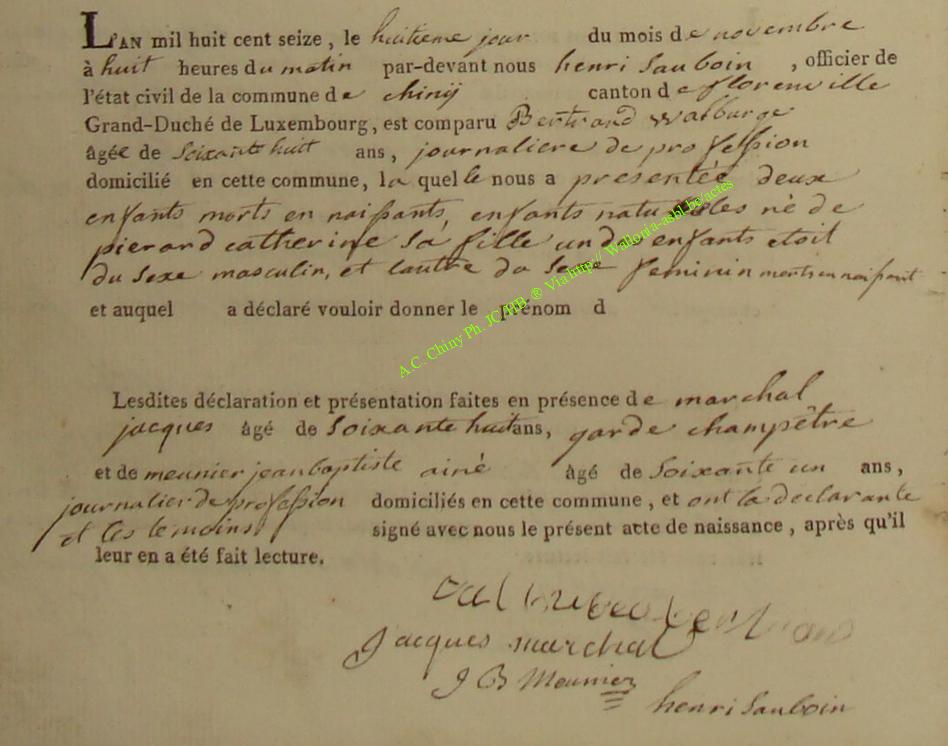 L'AN mil huit cent seize, le huitieme jour du mois de novembre
à huit heures du matin par-devant nous henri Sauboin, officier de
l'état civil de la commune de chinÿ canton de florenville
Grand-Duché de Luxembourg, est comparu Bertrand Walburge
âgée de Soixante huit ans, journaliere de profession
domicilié en cette commune, la quelle nous a presentée deux
enfants morts en naissants, enfants naturelles né de
pierard catherine Sa fille un de enfants etoit
du Sexe masculin, et lautre du Sexe feminin morts en naissant
et auquel a déclaré vouloir donner le prénom d
Lesdites déclaration et présentation faites en présence de marchal
jacques âgé de Soixante huit ans, garde champêtre
et de meunier jean baptiste ainé âgé de Soixante un ans,
journalier de profession domiciliés en cette commune, et ont la declarante
et les temoins signé avec nous le présent acte de naissance, après qu'il
leur en a été fait lecture.
Jacques marchal
J B Meunier
henri Sauboin
A.C. Chiny Ph. JCHPB ® Via http://Wallonia-asbl.be/actes